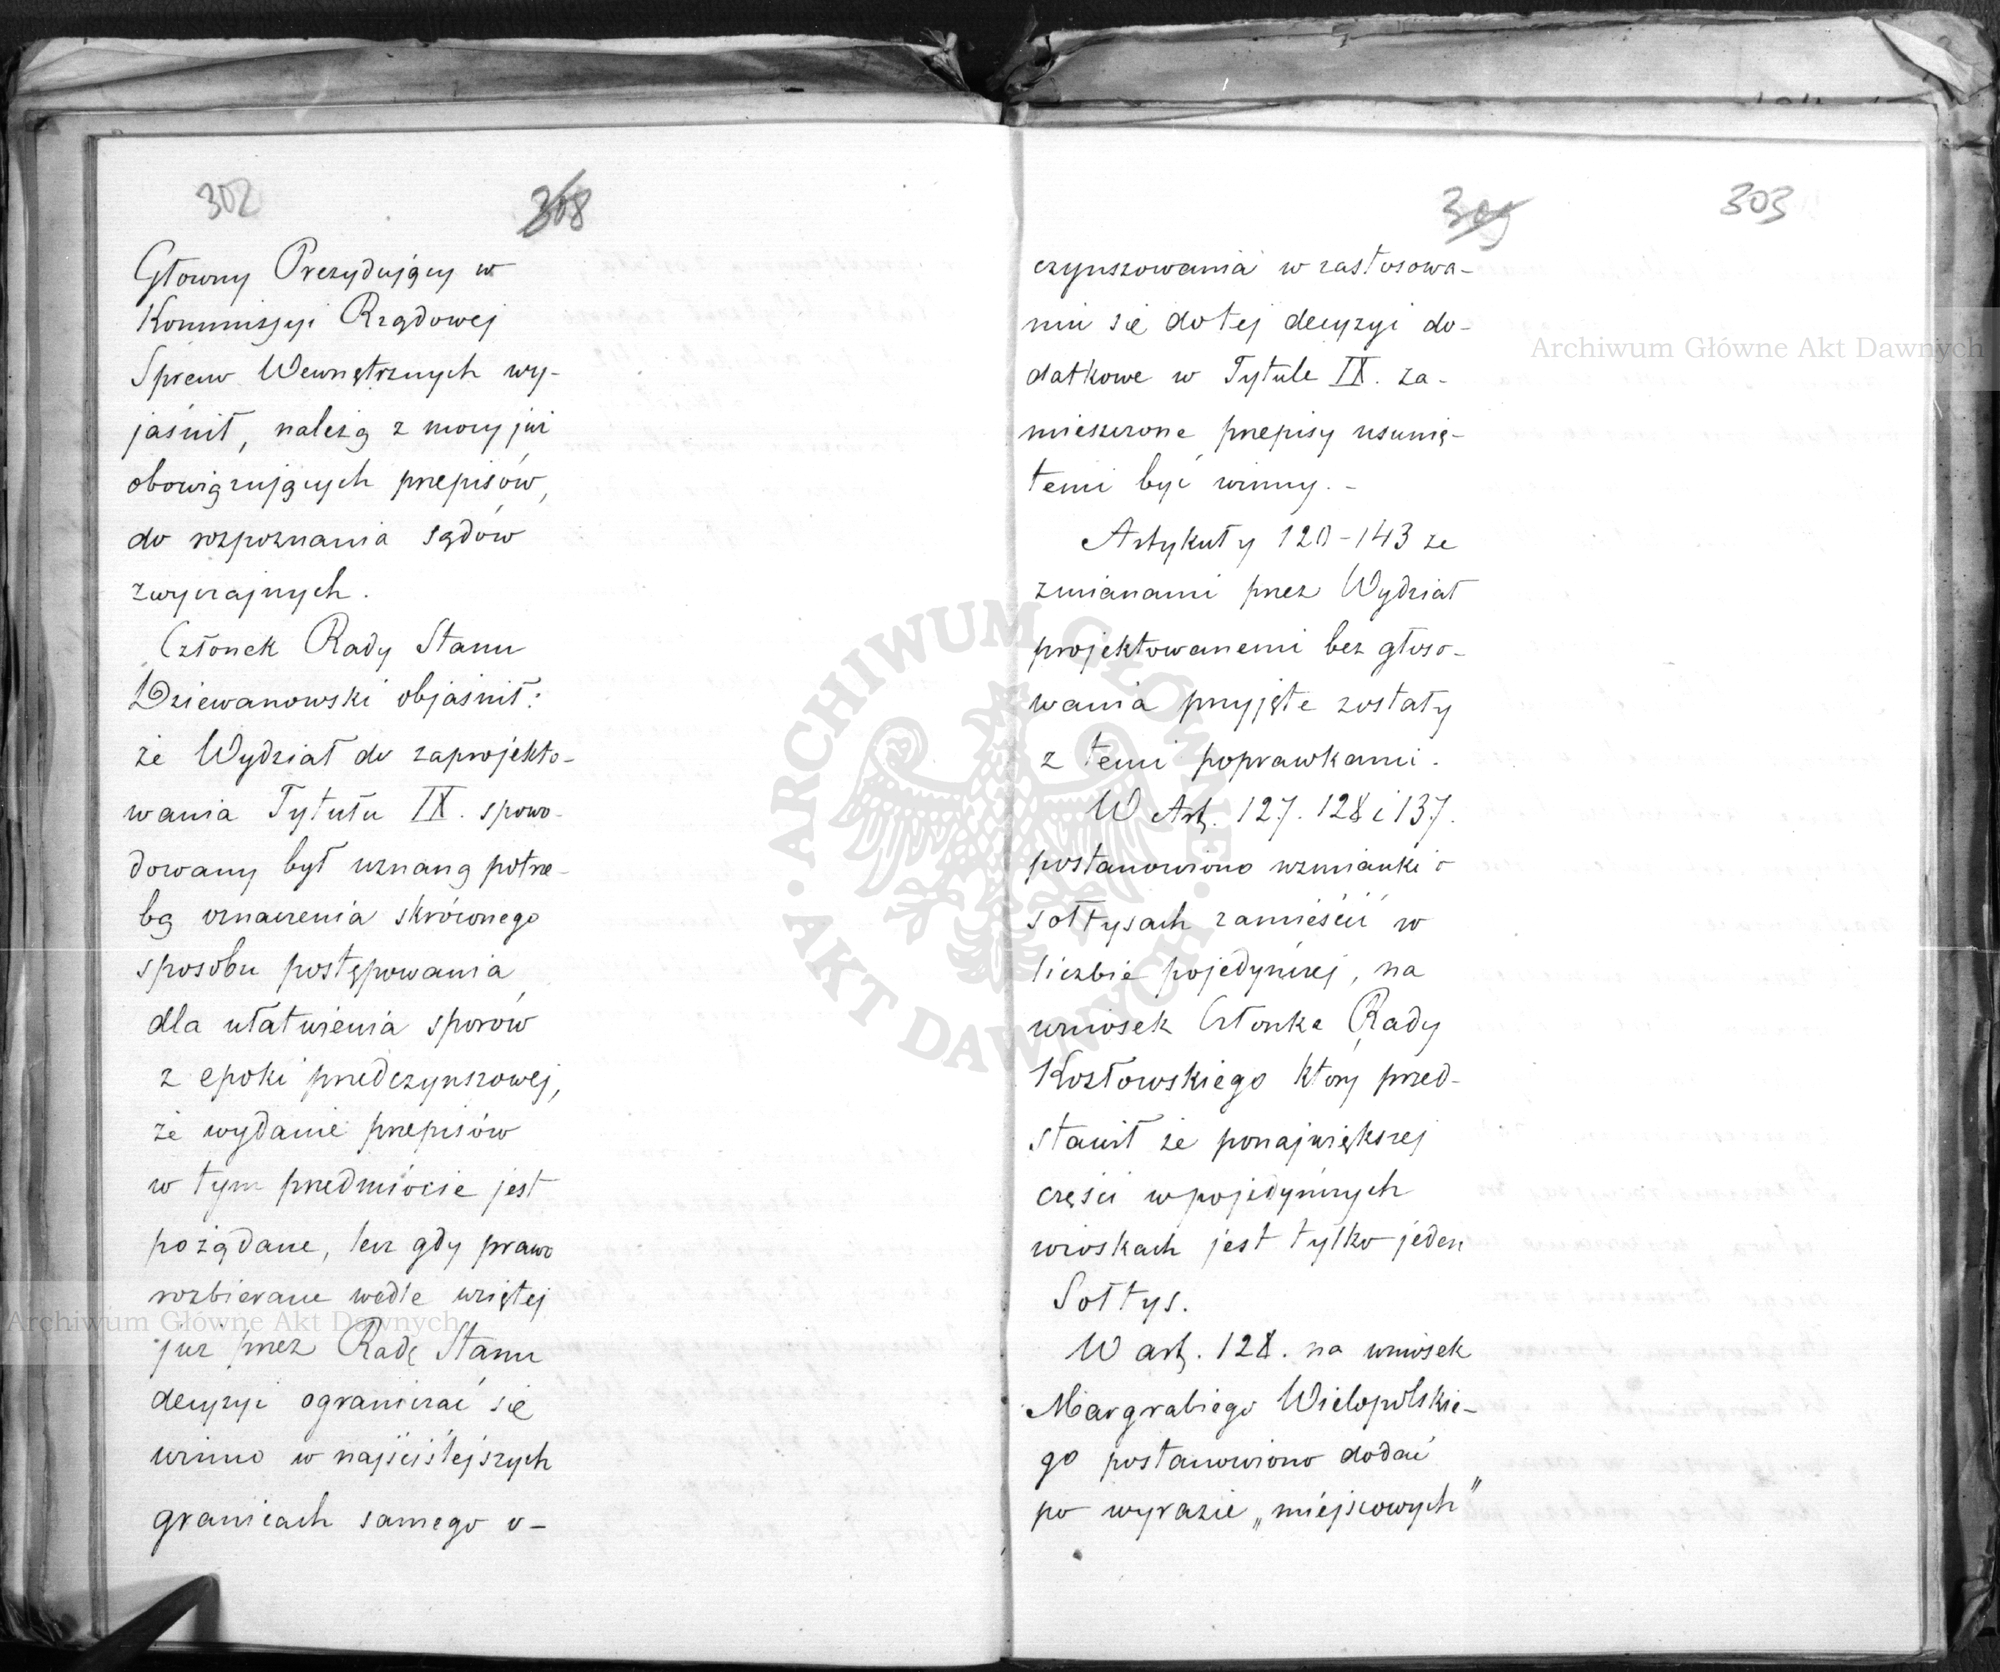 302
308
Główny Prezydujący w
Kommissyi Rządowej
Spraw Wewnętrznych wy-
jaśnił, należą z mocy już
obowiązujących przepisów,
do rozpoznania sądów
zwyczajnych.
Członek Rady Stanu
Dziewanowski objaśnił:
że Wydział do zaprojekto-
wania Tytułu IX. spowo-
dowany był uznaną potrze-
bą oznaczenia skróconego
sposobu postępowania
dla ułatwienia sporów
z epoki przedczynszowej,
że wydanie przepisów
w tym przedmiocie jest
pożądane, lecz gdy prawo
rozbierane wedle wziętej
już przez Radę Stanu
decyzyi ograniczać się
winno w najściślejszych
granicach samego o-
309
303
czynszowania w zastosowa-
niu się do tej decyzyi do-
datkowe w Tytule IX. za-
mieszczone przepisy usunię-
temi być winny. -
Artykuły 120-143 ze
zmianami przez Wydział
projektowanemi bez głoso-
wania przyjęte zostały
z temi poprawkami.
W Art. 127. 128 i 137.
postanowiono wzmianki o
sołtysach zamieścić w
liczbie pojedyńczej, na
wniosek Członka Rady
Kozłowskiego który przed-
stawił że ponajwiększej
części w pojedyńczych
wioskach jest tylko jeden
Sołtys.
W art. 128. na wniosek
Margrabiego Wielopolskie-
go postanowiono dodać
po wyrazie „miejscowych"
Archiwum Główne Akt Dawnych
Archiwum Główne Akt Dawnych
ARCHIWUM GŁÓWNE · AKT DAWNYCH ·